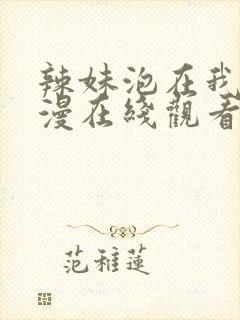 辣妹泡在我
漫在綫觀看
范稚蓮